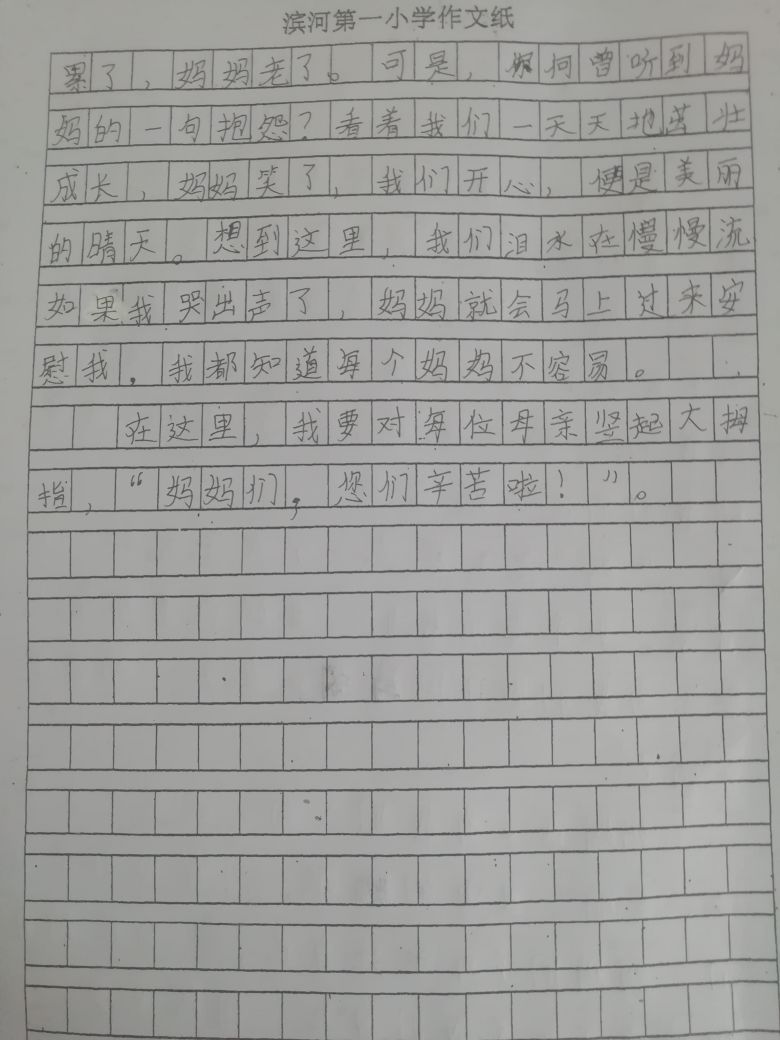 滨河第一小学作文纸
累了，妈妈老了。可是，你何曾听到妈
妈的一句抱怨？看着我们一天天地茁壮
成长，妈妈笑了，我们开心，便是美丽
的晴天。想到这里，我们泪水在慢慢流
如果我哭出声了，妈妈就会马上过来安
慰我。我都知道每个妈妈不容易。
在这里，我要对每位母亲竖起大拇
指，“妈妈们，您们辛苦啦！”。